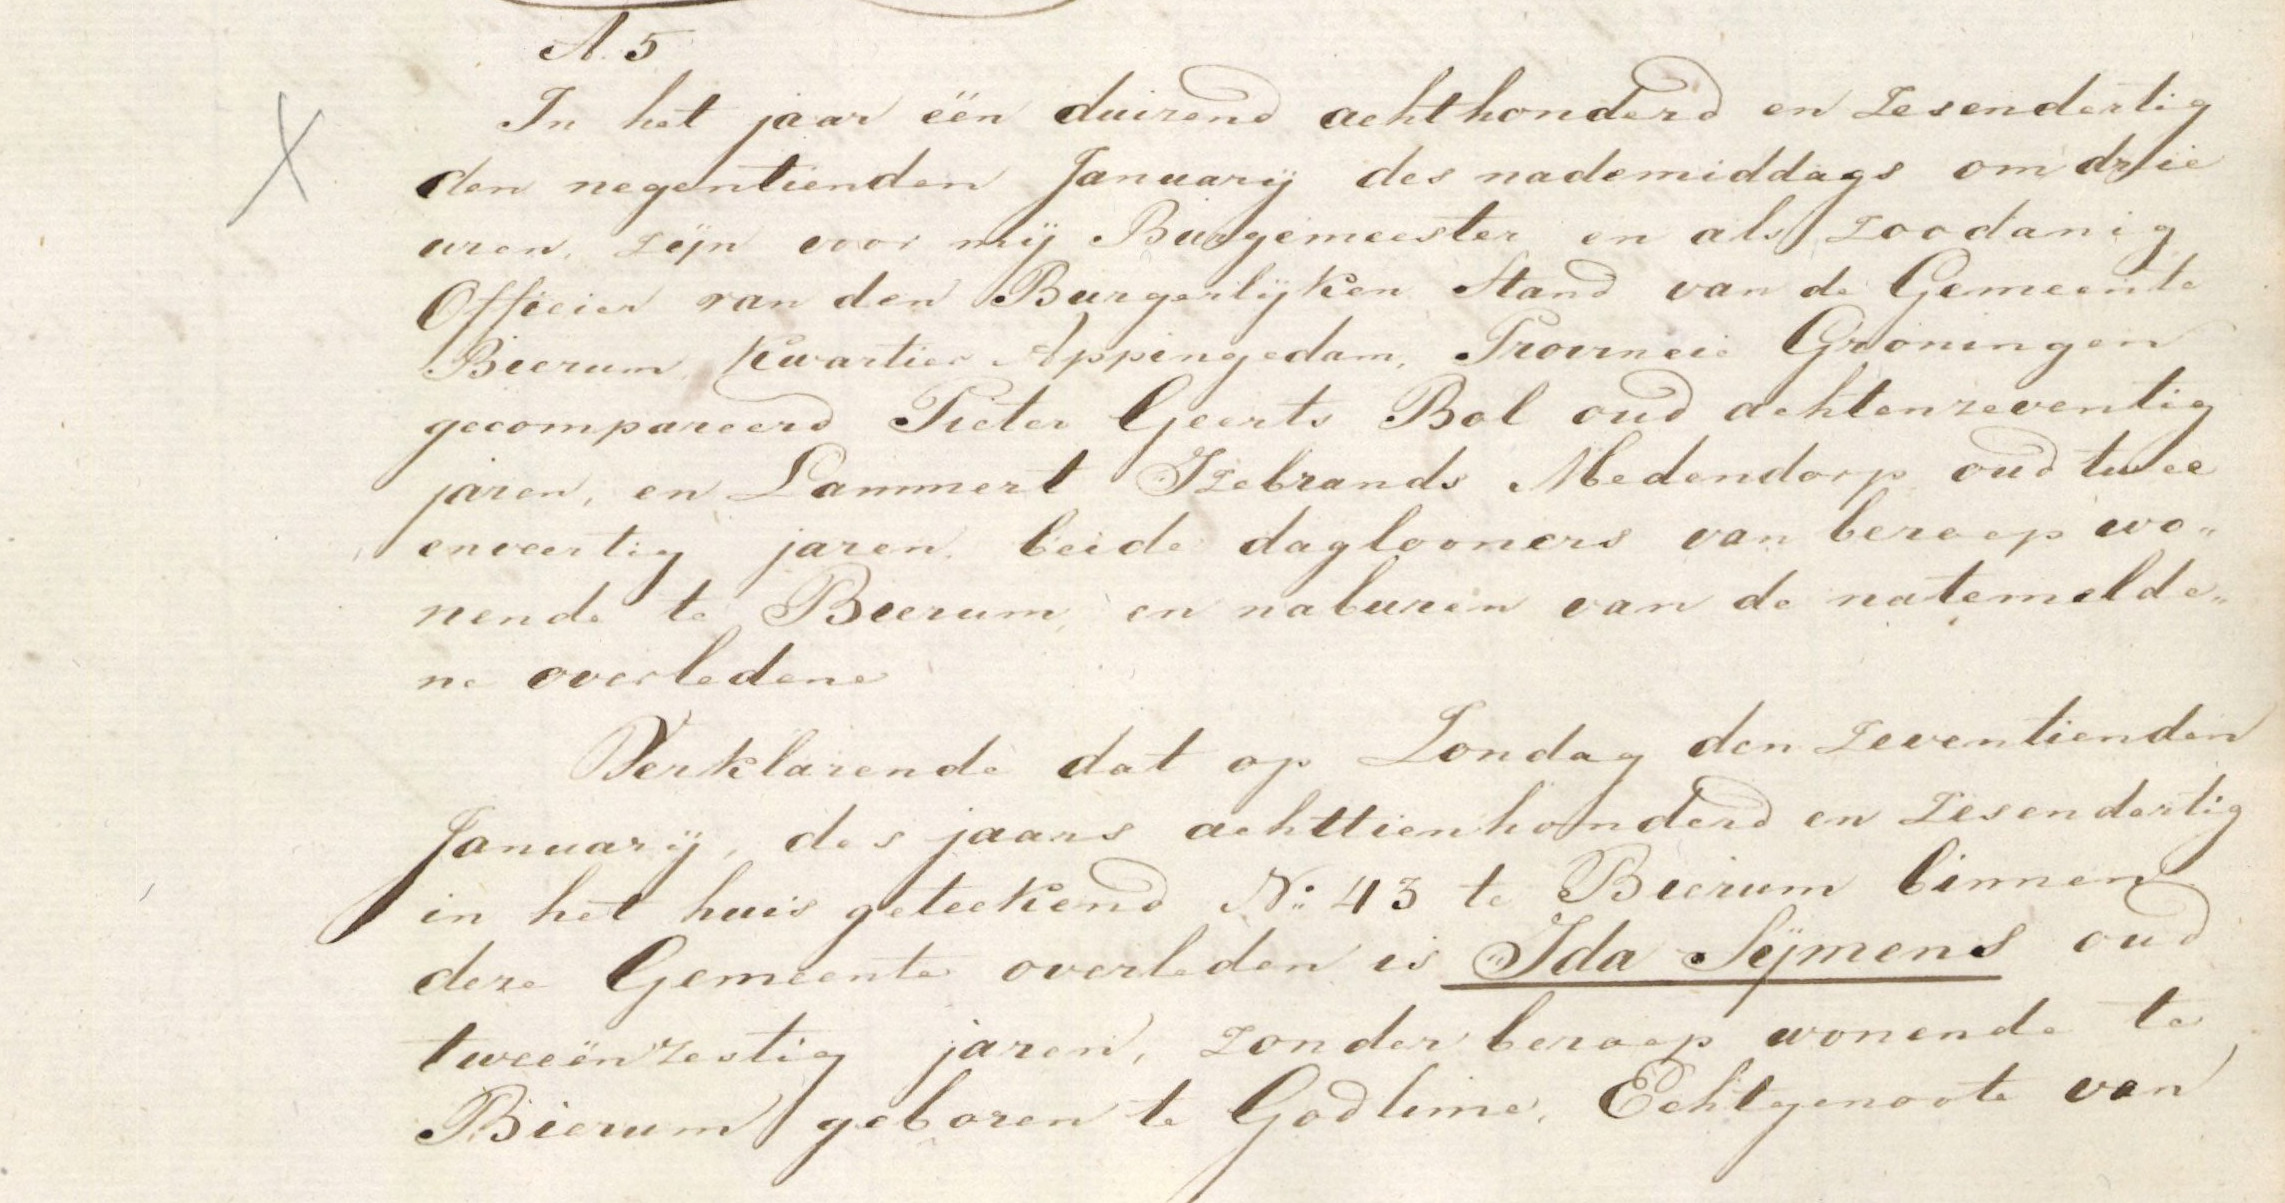 A. 5
In het jaar één duizend achthonderd en zesendertig
den negentienden Januarij des nademiddags om drie
uren, zijn voor mij Burgemeester en als zoodanig
Officier van den Burgerlijken Stand van de Gemeente
Bierum, Kwartier Appingedam, Provincie Groningen
gecompareerd Pieter Geerts Bol oud achtenzeventig
jaren, en Lammert Izebrands Medendorp oud twee
enveertig jaren, beide daglooners van beroep wo„
nende te Bierum, en naburen van de natemelde„
ne overledene
Verklarende dat op Zondag den zeventienden
Januarij, des jaars achttienhonderd en zesendertig
in het huis geteekend No: 43 te Bierum binnen
deze Gemeente overleden is Ida Sijmens oud
tweeënzestig jaren, zonder beroep wonende te
Bierum geboren te Godlinze, Echtgenoote van